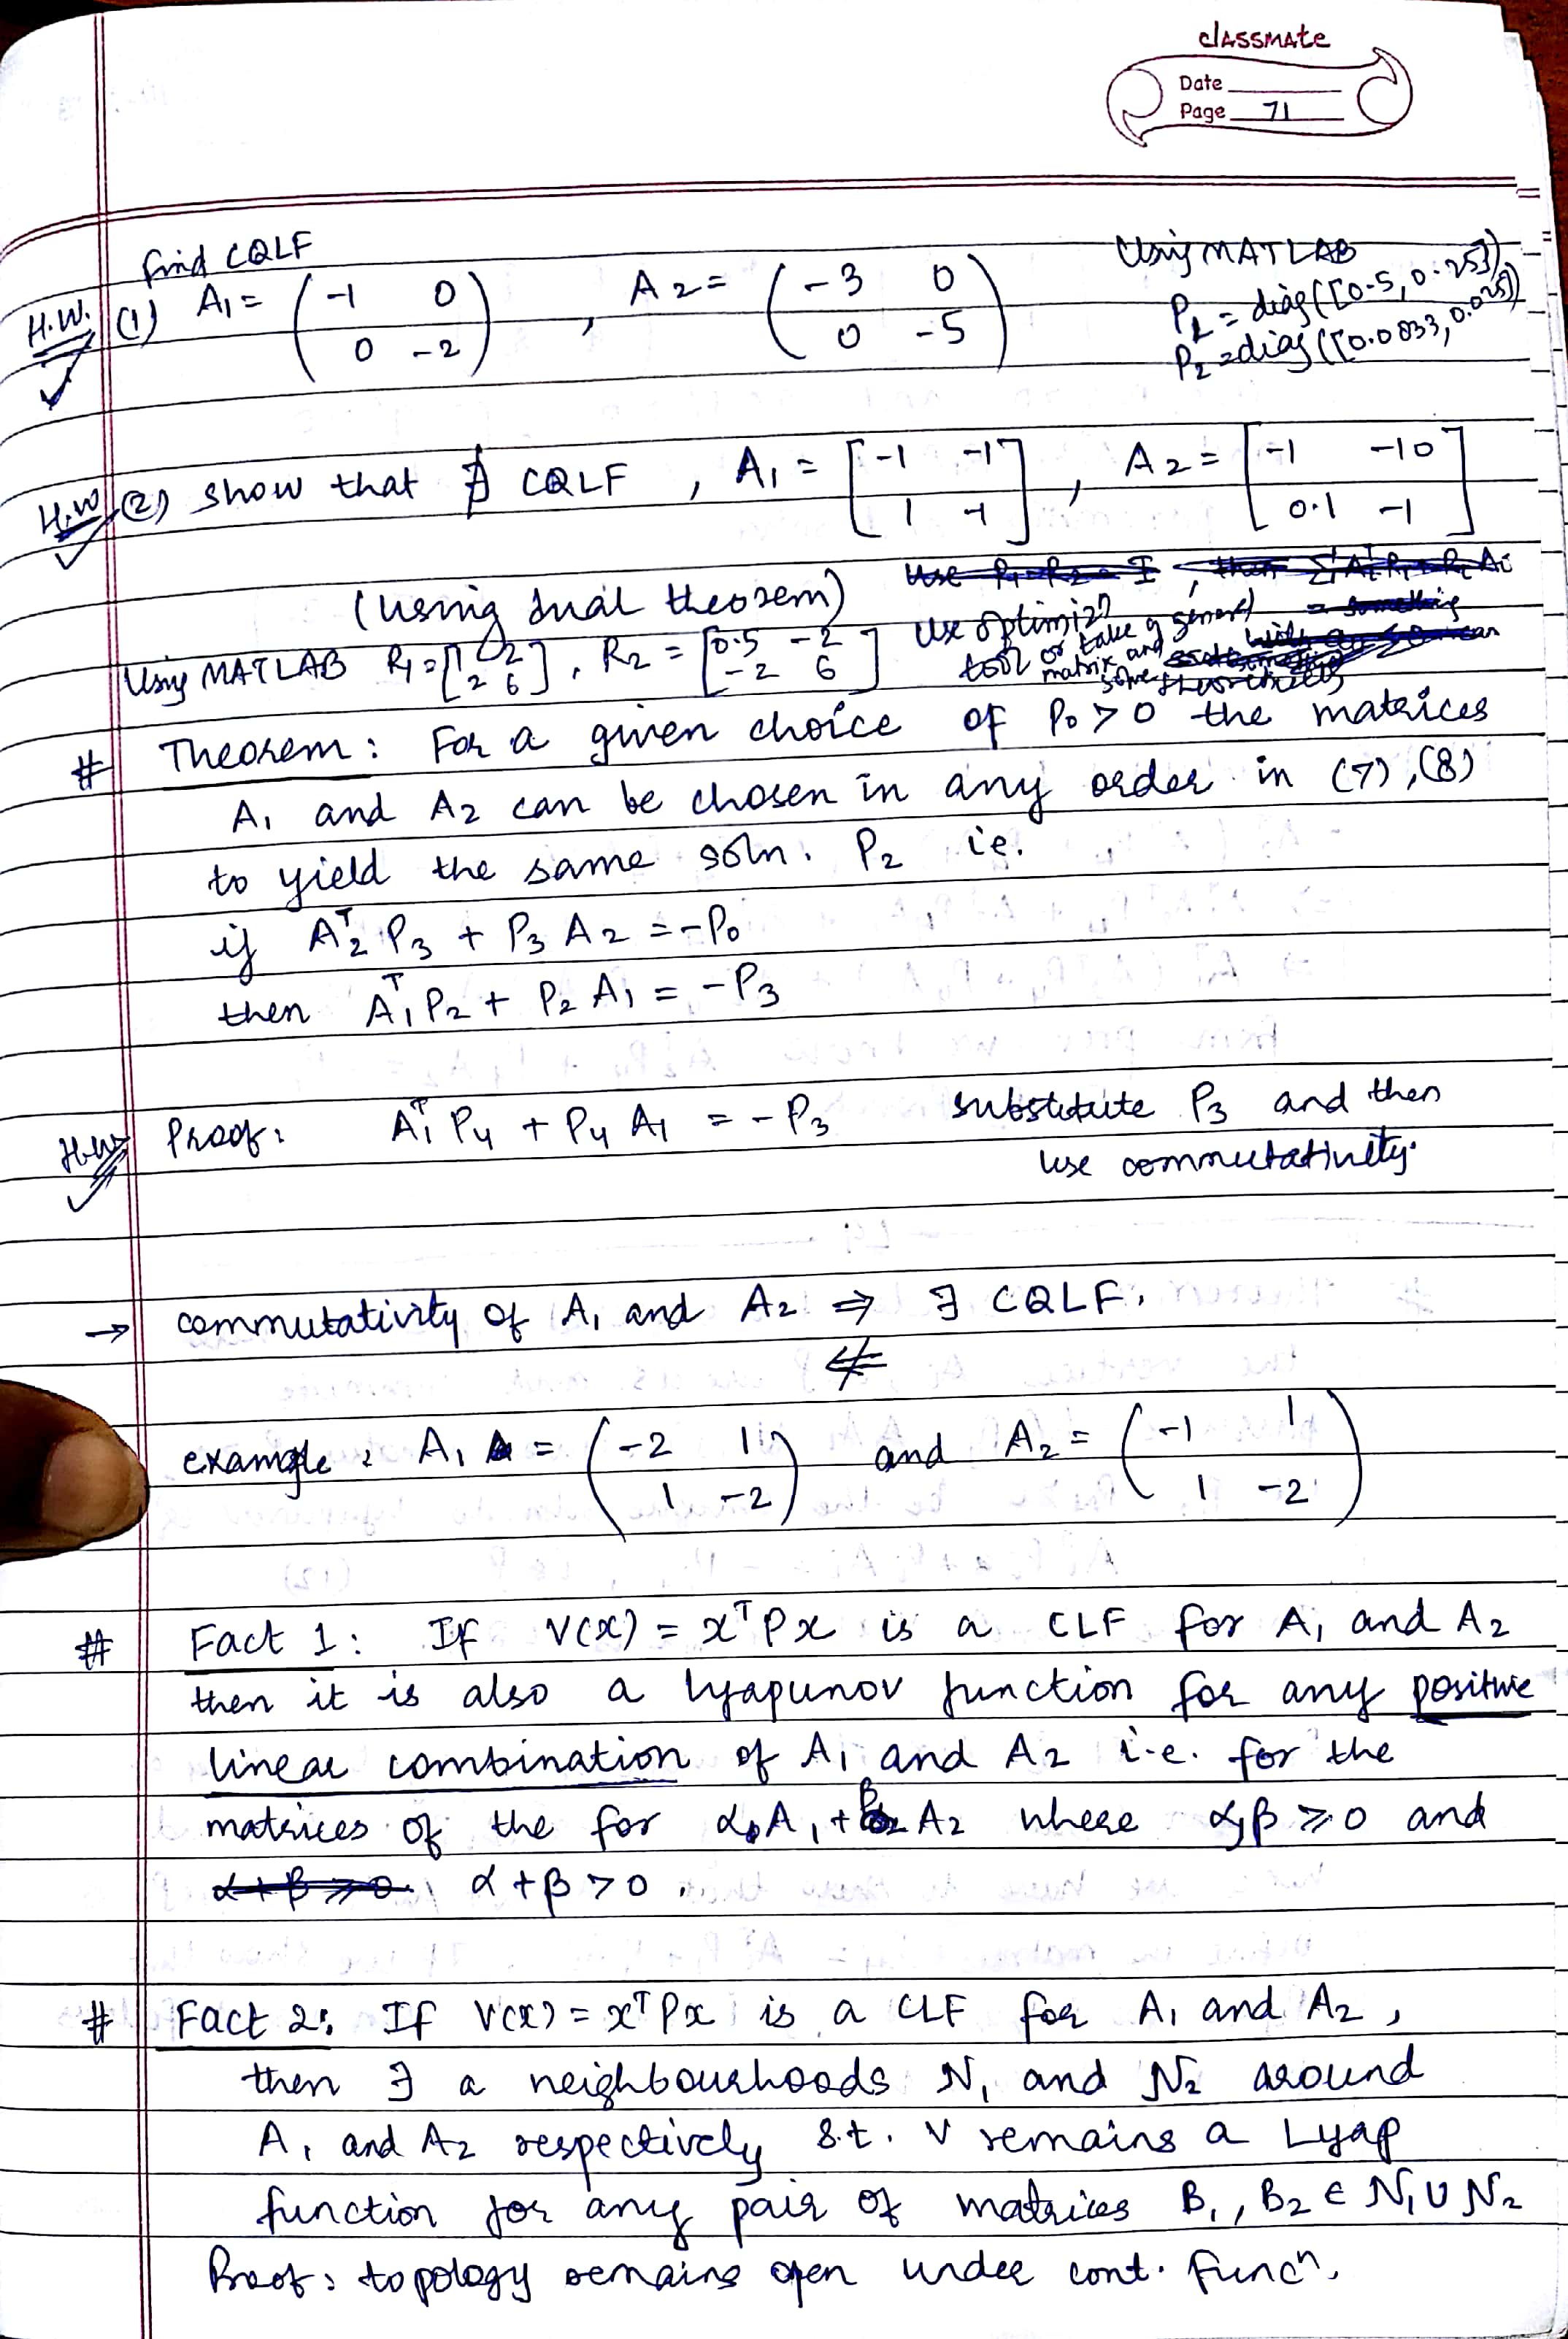 classmate
Date
Page 71
find CQLF
H.W. (1) A₁ = ( -1 0 ; 0 -2 ) , A₂ = ( -3 0 ; 0 -5 )
Using MATLAB
P₁ = diag([0.5, 0.25])
P₂ = diag([0.0833, 0.025])
H.W. (2) show that ∄ CQLF , A₁ = [ -1 -1 ; 1 -1 ] , A₂ = [ -1 -10 ; 0.1 -1 ]
(using dual theorem)
Using MATLAB R₁ = [ 1 2 ; 2 6 ] , R₂ = [ 0.5 -2 ; -2 6 ]
Use optimizⁿ
tool or take a general
matrix and
solve
# Theorem : For a given choice of P₀ > 0 the matrices
A₁ and A₂ can be chosen in any order in (7), (8)
to yield the same soln. P₂ i.e.
if A₂ᵀ P₃ + P₃ A₂ = -P₀
then A₁ᵀ P₂ + P₂ A₁ = -P₃
H.W. Proof : A₁ᵀ P₄ + P₄ A₁ = -P₃ substitute P₃ and then
use commutativity.
→ commutativity of A₁ and A₂ ⇒ ∃ CQLF.
⇍
example : A₁ = ( -2 1 ; 1 -2 ) and A₂ = ( -1 1 ; 1 -2 )
# Fact 1 : If V(x) = xᵀPx is a CLF for A₁ and A₂
then it is also a lyapunov function for any positive
linear combination of A₁ and A₂ i.e. for the
matrices of the for αA₁ + βA₂ where α,β ⩾ 0 and
α + β ⩾ 0 α + β > 0 .
# Fact 2 : If V(x) = xᵀPx is a CLF for A₁ and A₂ ,
then ∃ a neighbourhoods N₁ and N₂ around
A₁ and A₂ respectively s.t. V remains a Lyap
function for any pair of matrices B₁, B₂ ∈ N₁ ∪ N₂
Proof : topology remains open under cont. funcⁿ.